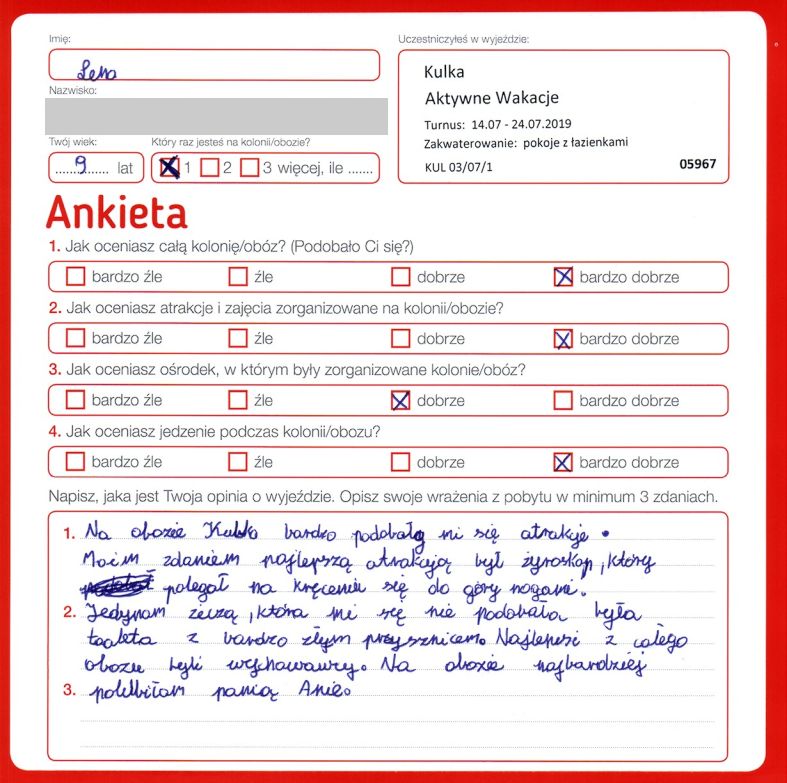 Imię:
Lena
Nazwisko:
Twój wiek:
Który raz jesteś na kolonii/obozie?
......9...... lat
1 2 3 więcej, ile .......
Uczestniczyłeś w wyjeździe:
Kulka
Aktywne Wakacje
Turnus: 14.07 - 24.07.2019
Zakwaterowanie: pokoje z łazienkami
KUL 03/07/1 05967
Ankieta
1. Jak oceniasz całą kolonię/obóz? (Podobało Ci się?)
bardzo źle źle dobrze bardzo dobrze
2. Jak oceniasz atrakcje i zajęcia zorganizowane na kolonii/obozie?
bardzo źle źle dobrze bardzo dobrze
3. Jak oceniasz ośrodek, w którym były zorganizowane kolonie/obóz?
bardzo źle źle dobrze bardzo dobrze
4. Jak oceniasz jedzenie podczas kolonii/obozu?
bardzo źle źle dobrze bardzo dobrze
Napisz, jaka jest Twoja opinia o wyjeździe. Opisz swoje wrażenia z pobytu w minimum 3 zdaniach.
1. Na obozie Kulka bardzo podobały mi się atrakcje.
Moim zdaniem najlepszą atrakcją był żyroskop, który
polegał na kręceniu się do góry nogami.
2. Jedynam żeczą, która mi się nie podobała była
toaleta z bardzo złym przysznicem. Najlepsi z całego
obozu byli wychowawcy. Na obozie najbardziej
3. polubiłam panią Anię.